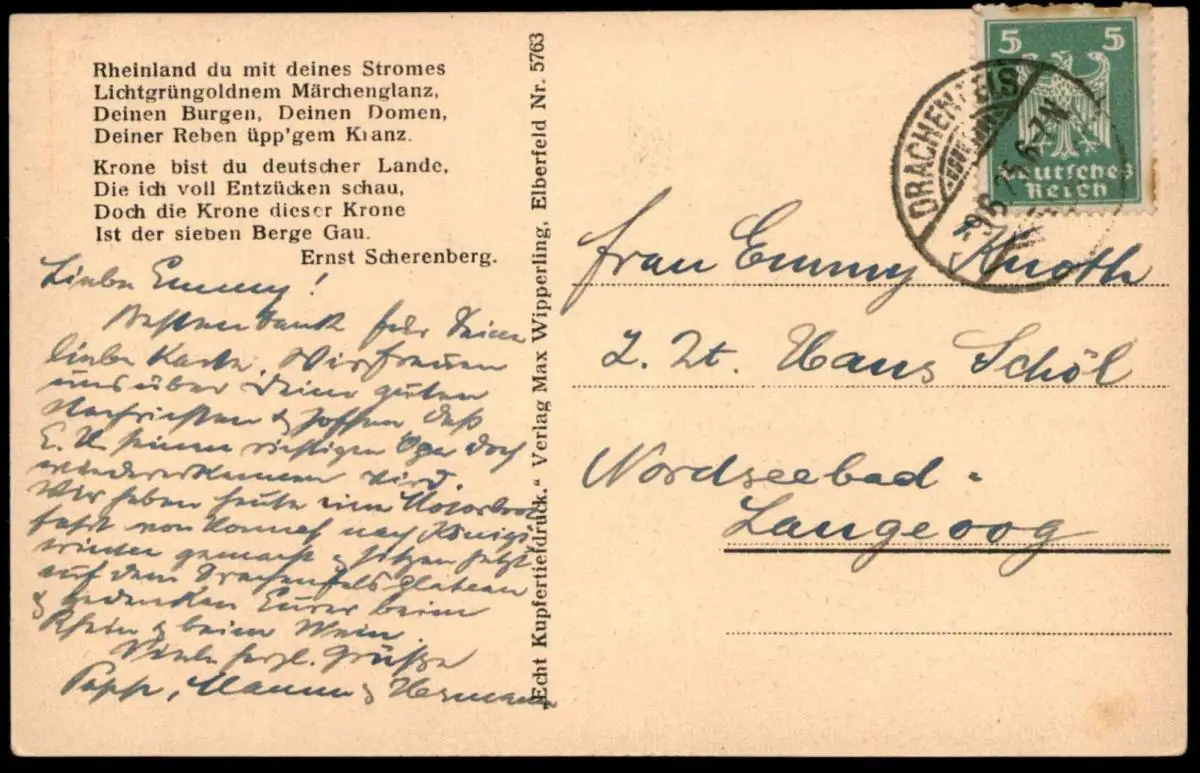 Rheinland du mit deines Stromes
Lichtgrüngoldnem Märchenglanz,
Deinen Burgen, Deinen Domen,
Deiner Reben üpp'gem Kranz.
Krone bist du deutscher Lande,
Die ich voll Entzücken schau,
Doch die Krone dieser Krone
Ist der sieben Berge Gau.
Ernst Scherenberg.
Liebe Emmy!
Besten Dank für Deine
liebe Karte. Wir freuen
uns über Deine guten
Nachrichten & hoffen daß
E. U. seinen richtigen doch
wiedererkennen wird.
Wir haben heute eine Motorboot
fahrt von Honnef nach Königs
winter gemacht & sitzen jetzt
auf dem Drachenfelsplateau
& gedenken Eurer beim
Rhein & beim Wein
Viele herzl. Grüße
Papa, Mamma & Hermann
„Echt Kupfertiefdruck.“ Verlag Max Wipperling, Elberfeld Nr. 5763
5 5
Deutsches
Reich
DRACHENFELS
9.6.25.6-7N
Frau Emmy Knoth
z. Zt. Haus Schöl
Nordseebad-
Langeoog